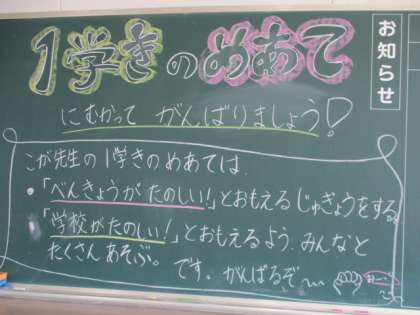 お知らせ
1学きのめあて
にむかって がんばりましょう!
こが先生の1学きのめあては、
・「べんきょうがたのしい!」とおもえるじゅぎょうをする。
・「学校がたのしい!」とおもえるよう、みんなと
たくさんあそぶ。
です。がんばるぞ〜